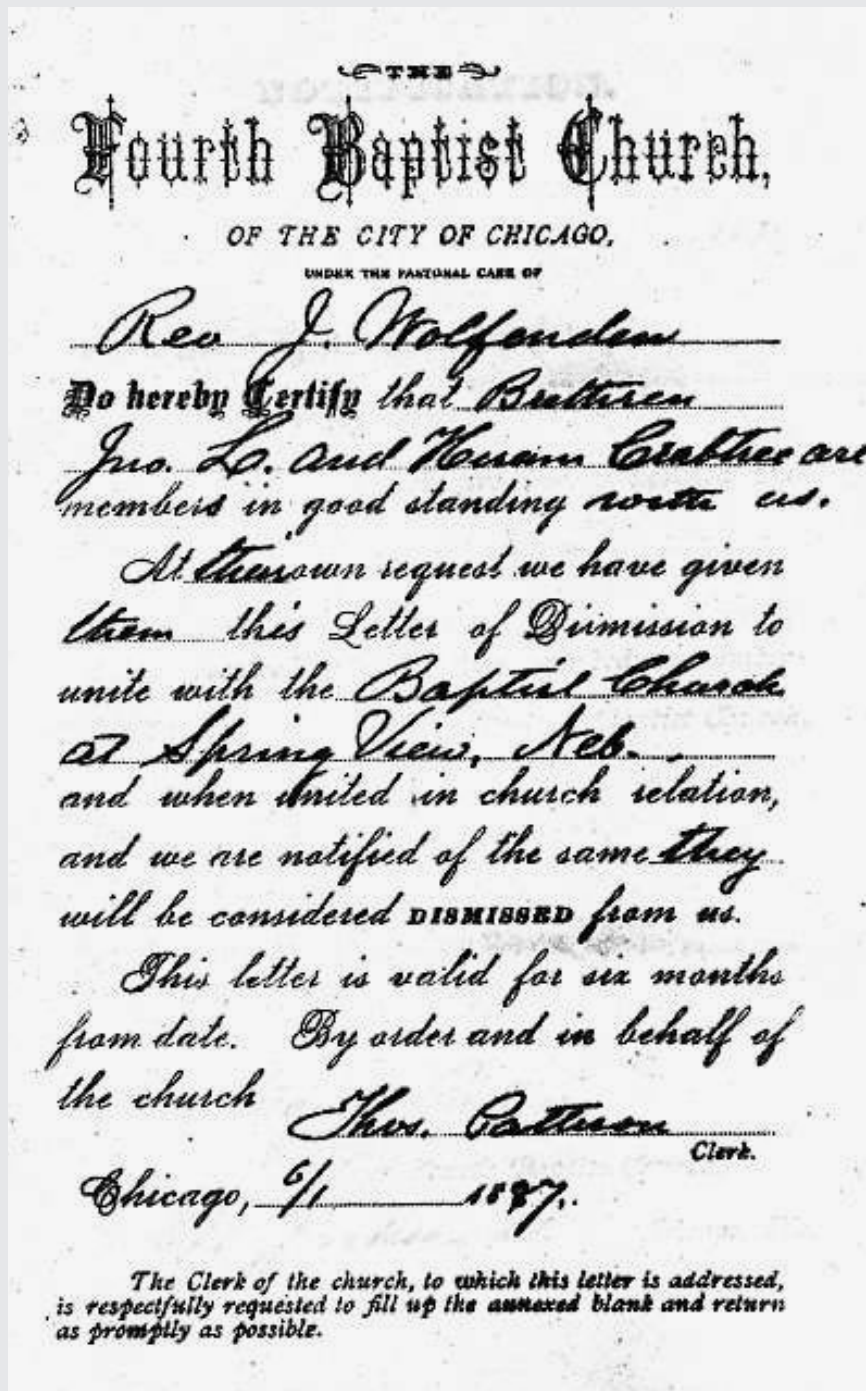 THE
Fourth Baptist Church,
OF THE CITY OF CHICAGO,
UNDER THE PASTORAL CARE OF
Rev J. Wolfenden
Do hereby Certify that Brethren
Jno. L. and Hiram Crabtree are
members in good standing with us.
At their own request we have given
them this Letter of Dismission to
unite with the Baptist Church
at Spring View, Neb.
and when united in church relation,
and we are notified of the same they
will be considered DISMISSED from us.
This letter is valid for six months
from date. By order and in behalf of
the church
Thos. Patterson
Clerk.
Chicago, 6/1 1887.
The Clerk of the church, to which this letter is addressed,
is respectfully requested to fill up the annexed blank and return
as promptly as possible.